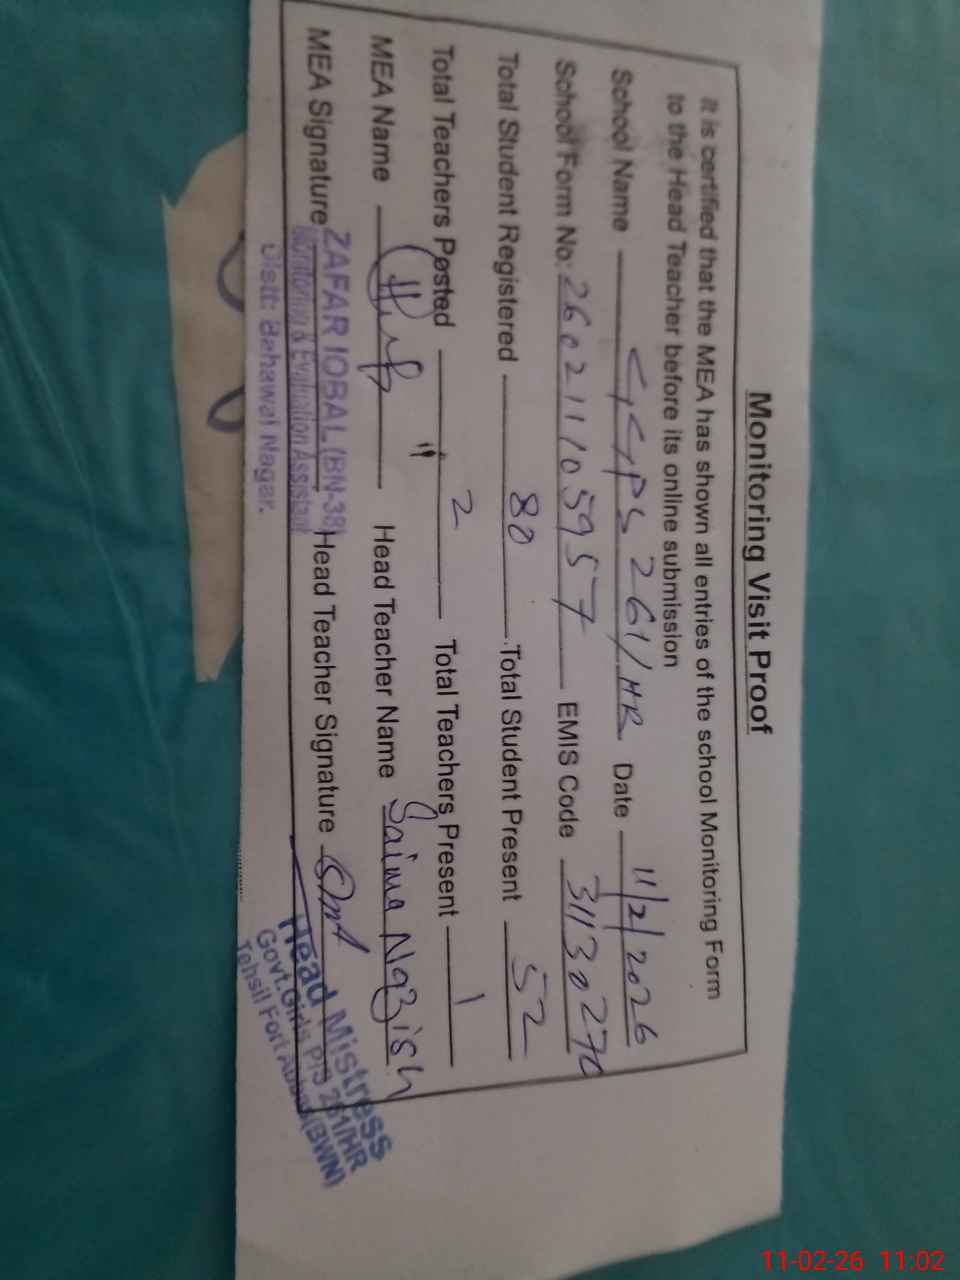 Monitoring Visit Proof
It is certified that the MEA has shown all entries of the school Monitoring Form
to the Head Teacher before its online submission
School Name GGPS 261/HR Date 11/2/2026
School Form No: 26021110 5957 EMIS Code 31130270
Total Student Registered 80 Total Student Present 52
Total Teachers Posted 2 Total Teachers Present 1
MEA Name Head Teacher Name Saima Nazish
MEA Signature Head Teacher Signature
ZAFAR IQBAL (BN-38)
Monitoring & Evaluation Assistant
Distt: Bahawal Nagar.
Head Mistress
Govt. Girls P/S 261/HR
Tehsil Fort Abbas (BWN)
11-02-26 11:02